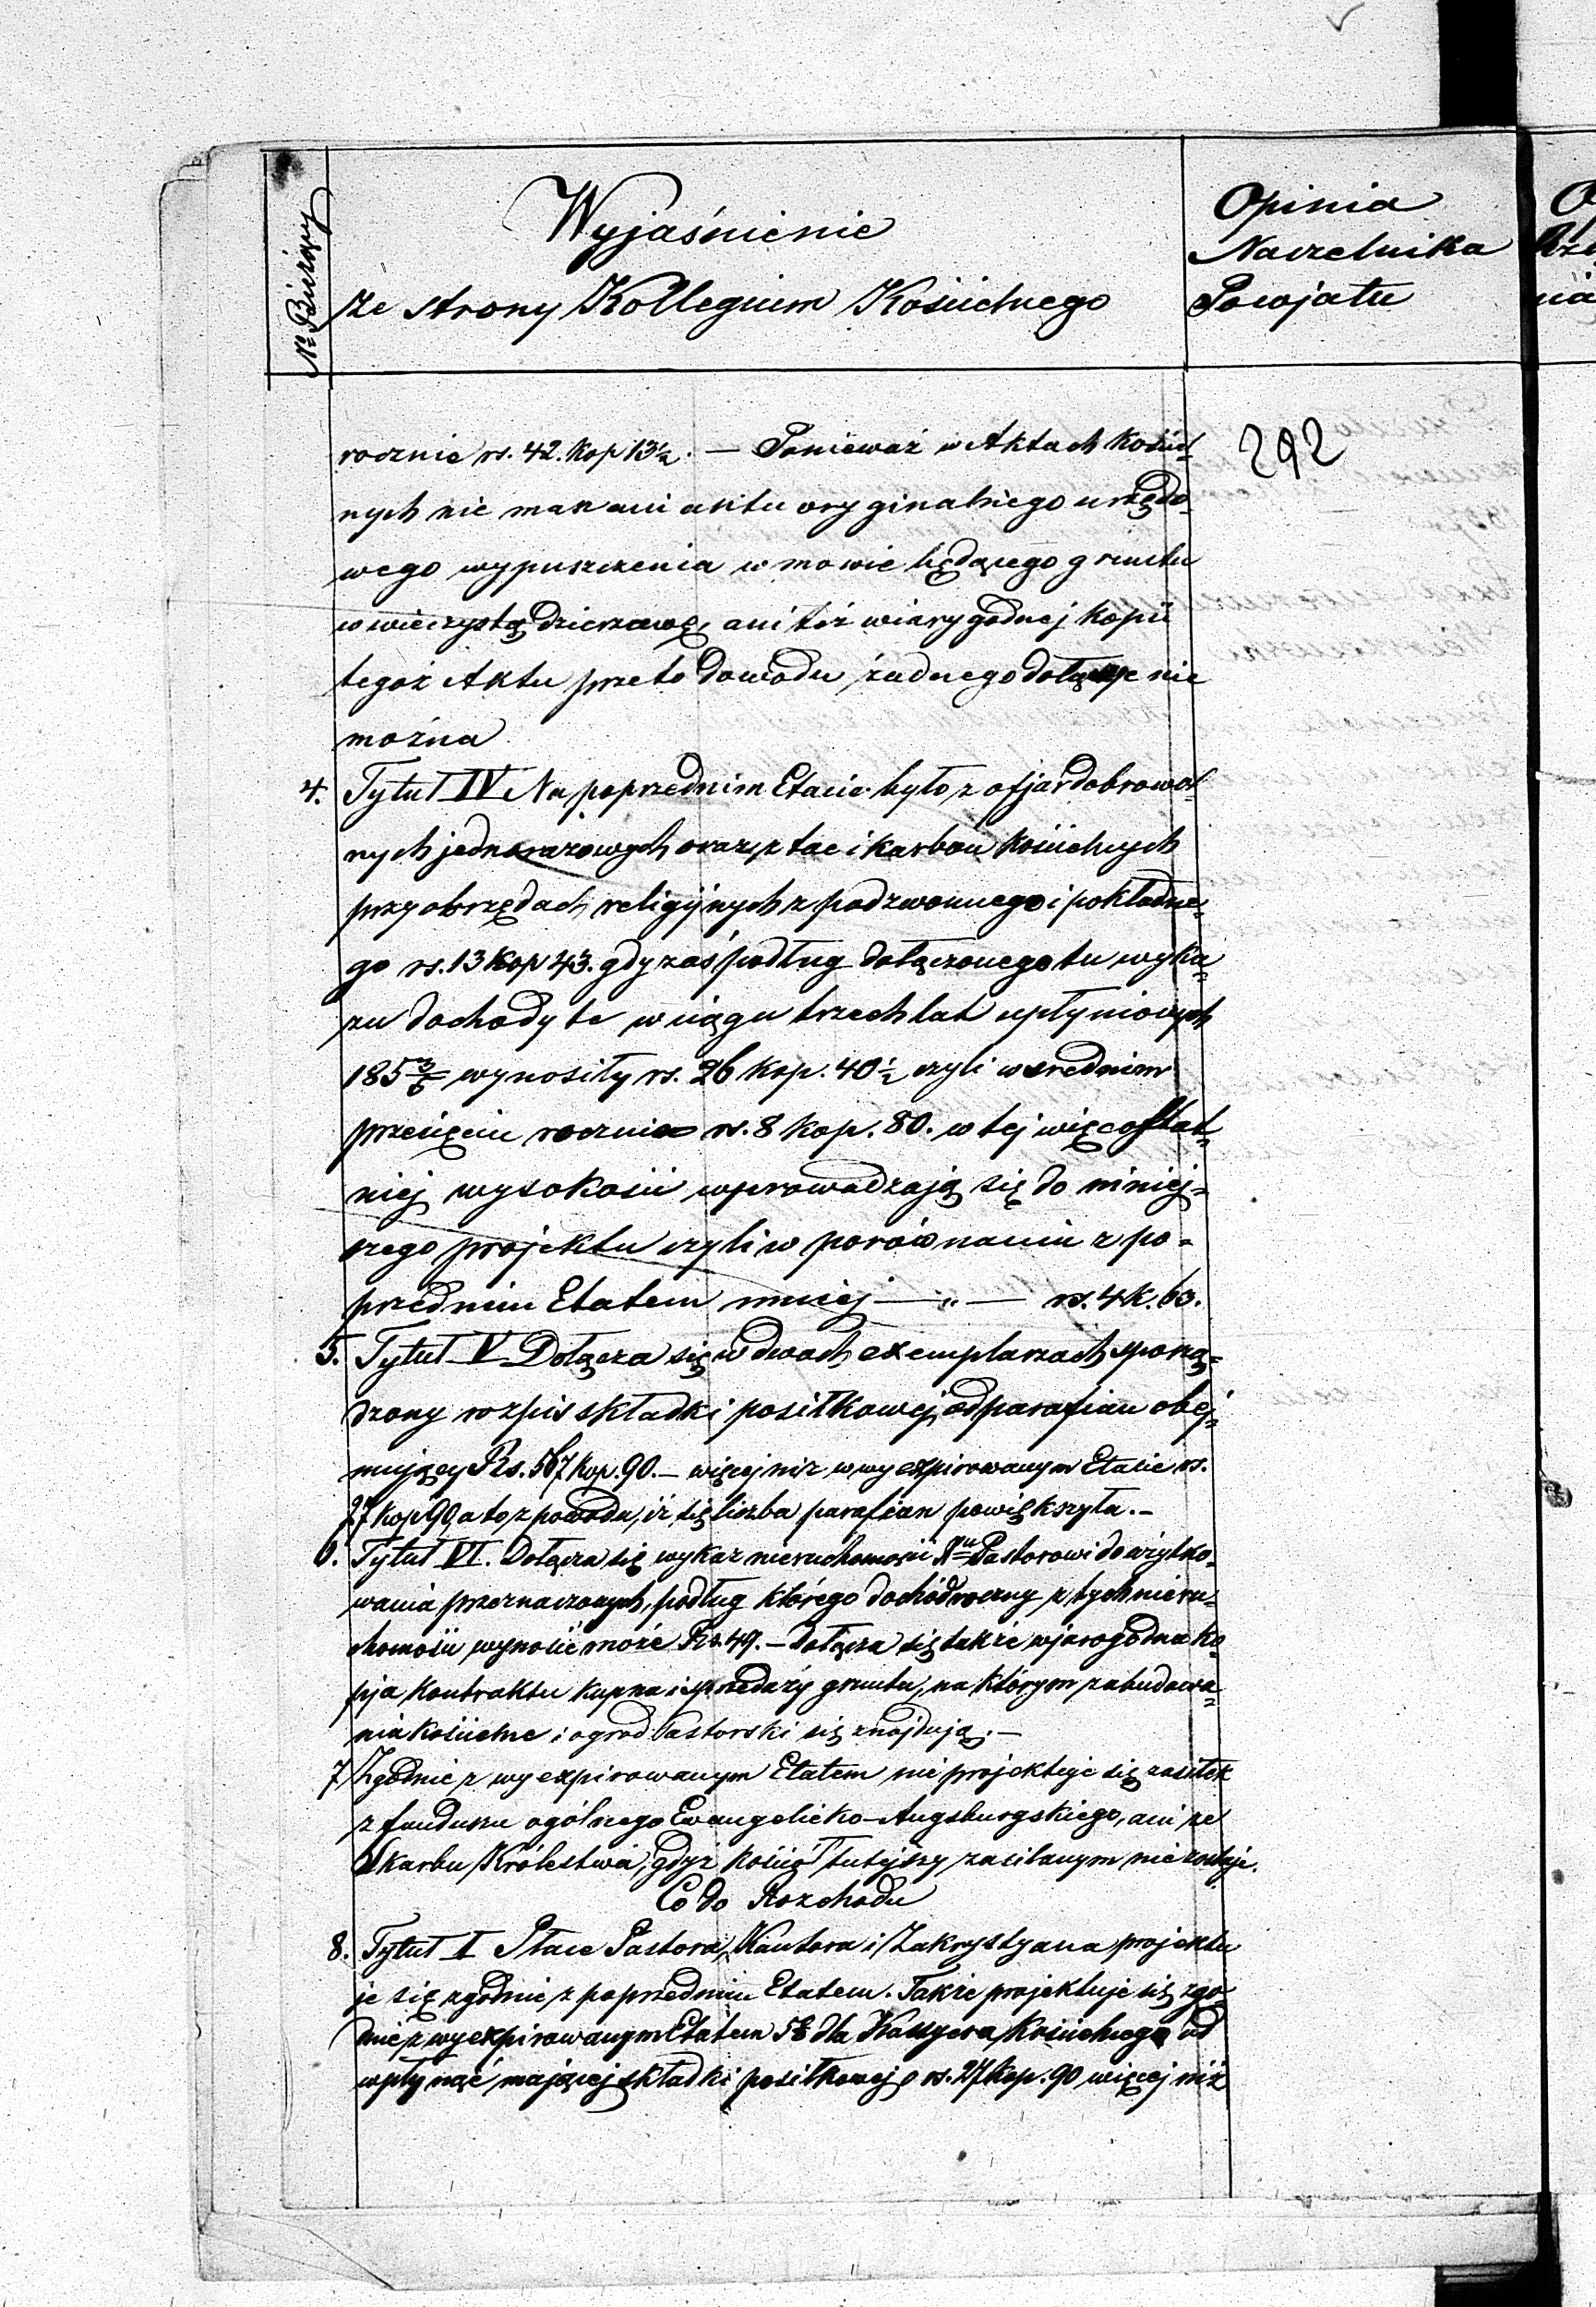 Nr Bieżący
Wyjaśnienie
ze strony Kollegium Kościelnego
Opinia
Naczelnika
Powjatu
292
rocznie rs. 42. kop 13½. — Ponieważ w Aktach Kościel-
nych nie masz ani aktu oryginalnego urzędo-
wego wypuszczenia w mowie będącego gruntu
w wieczystą dzierżawę, ani też wiarygodnej kopii
tegoż Aktu przeto dowodu żadnego dołączyć nie
można
4. Tytuł IV Na poprzednim Etacie było z ofjar dobrowol-
nych jednorazowych oraz z tac i karbon kościelnych
przy obrzędach religijnych z podzwonnego i pokładne-
go rs. 13 kop 43. gdy zaś podług dołączonego tu wyka-
zu dochody te w ciągu trzech lat upłynionych
185 3/5 wynosiły rs. 26 kop. 40½ czyli w srednim
przecięciu rocznie rs. 8 kop. 80. w tej więc ostat-
niej wysokości wprowadzają się do niniej-
szego projektu czyli w porównaniu z po-
przednim Etatem mniej — „ — rs. 4 k. 63.
5. Tytuł V Dołącza się w dwóch exemplarzach sporzą-
dzony rozpis składki posiłkowej od parafian obej-
mujący Rs. 567 kop. 90. — więcej niż w wyexpirowanym Etacie rs.
27 kop 90, a to z powodu, iż się liczba parafian powiększyła. —
6. Tytuł VI. Dołącza się wykaz nieruchomości Xu Pastorowi do użytko-
wania przeznaczonych, podług którego dochód roczny z tych nieru-
chomości wynosić może Rs. 49. — Dołącza się także wjarogodna ko-
pja kontraktu kupna i sprzedaży gruntu, na którym zabudowa-
nia kościelne i ogrod Pastorski się znajdują. —
7 Zgodnie z wyexpirowanym Etatem nie projektuje się zasiłek
z funduszu ogólnego Ewangelicko-Augsburgskiego, ani ze
Skarbu Królestwa, gdyż kościół tutejszy zasilanym nie zostaje.
Co do Rozchodu
8. Tytuł I Płace Pastora, Kantora i Zakrystyana projektu
je się zgodnie z poprzednim Etatem. Także projektuje się zgo-
dnie z wyexpirowanym Etatem 5% dla Kassyera kościelnego od
wpłynąć mającej składki posiłkowej o rs. 27 kop. 90 więcej niż